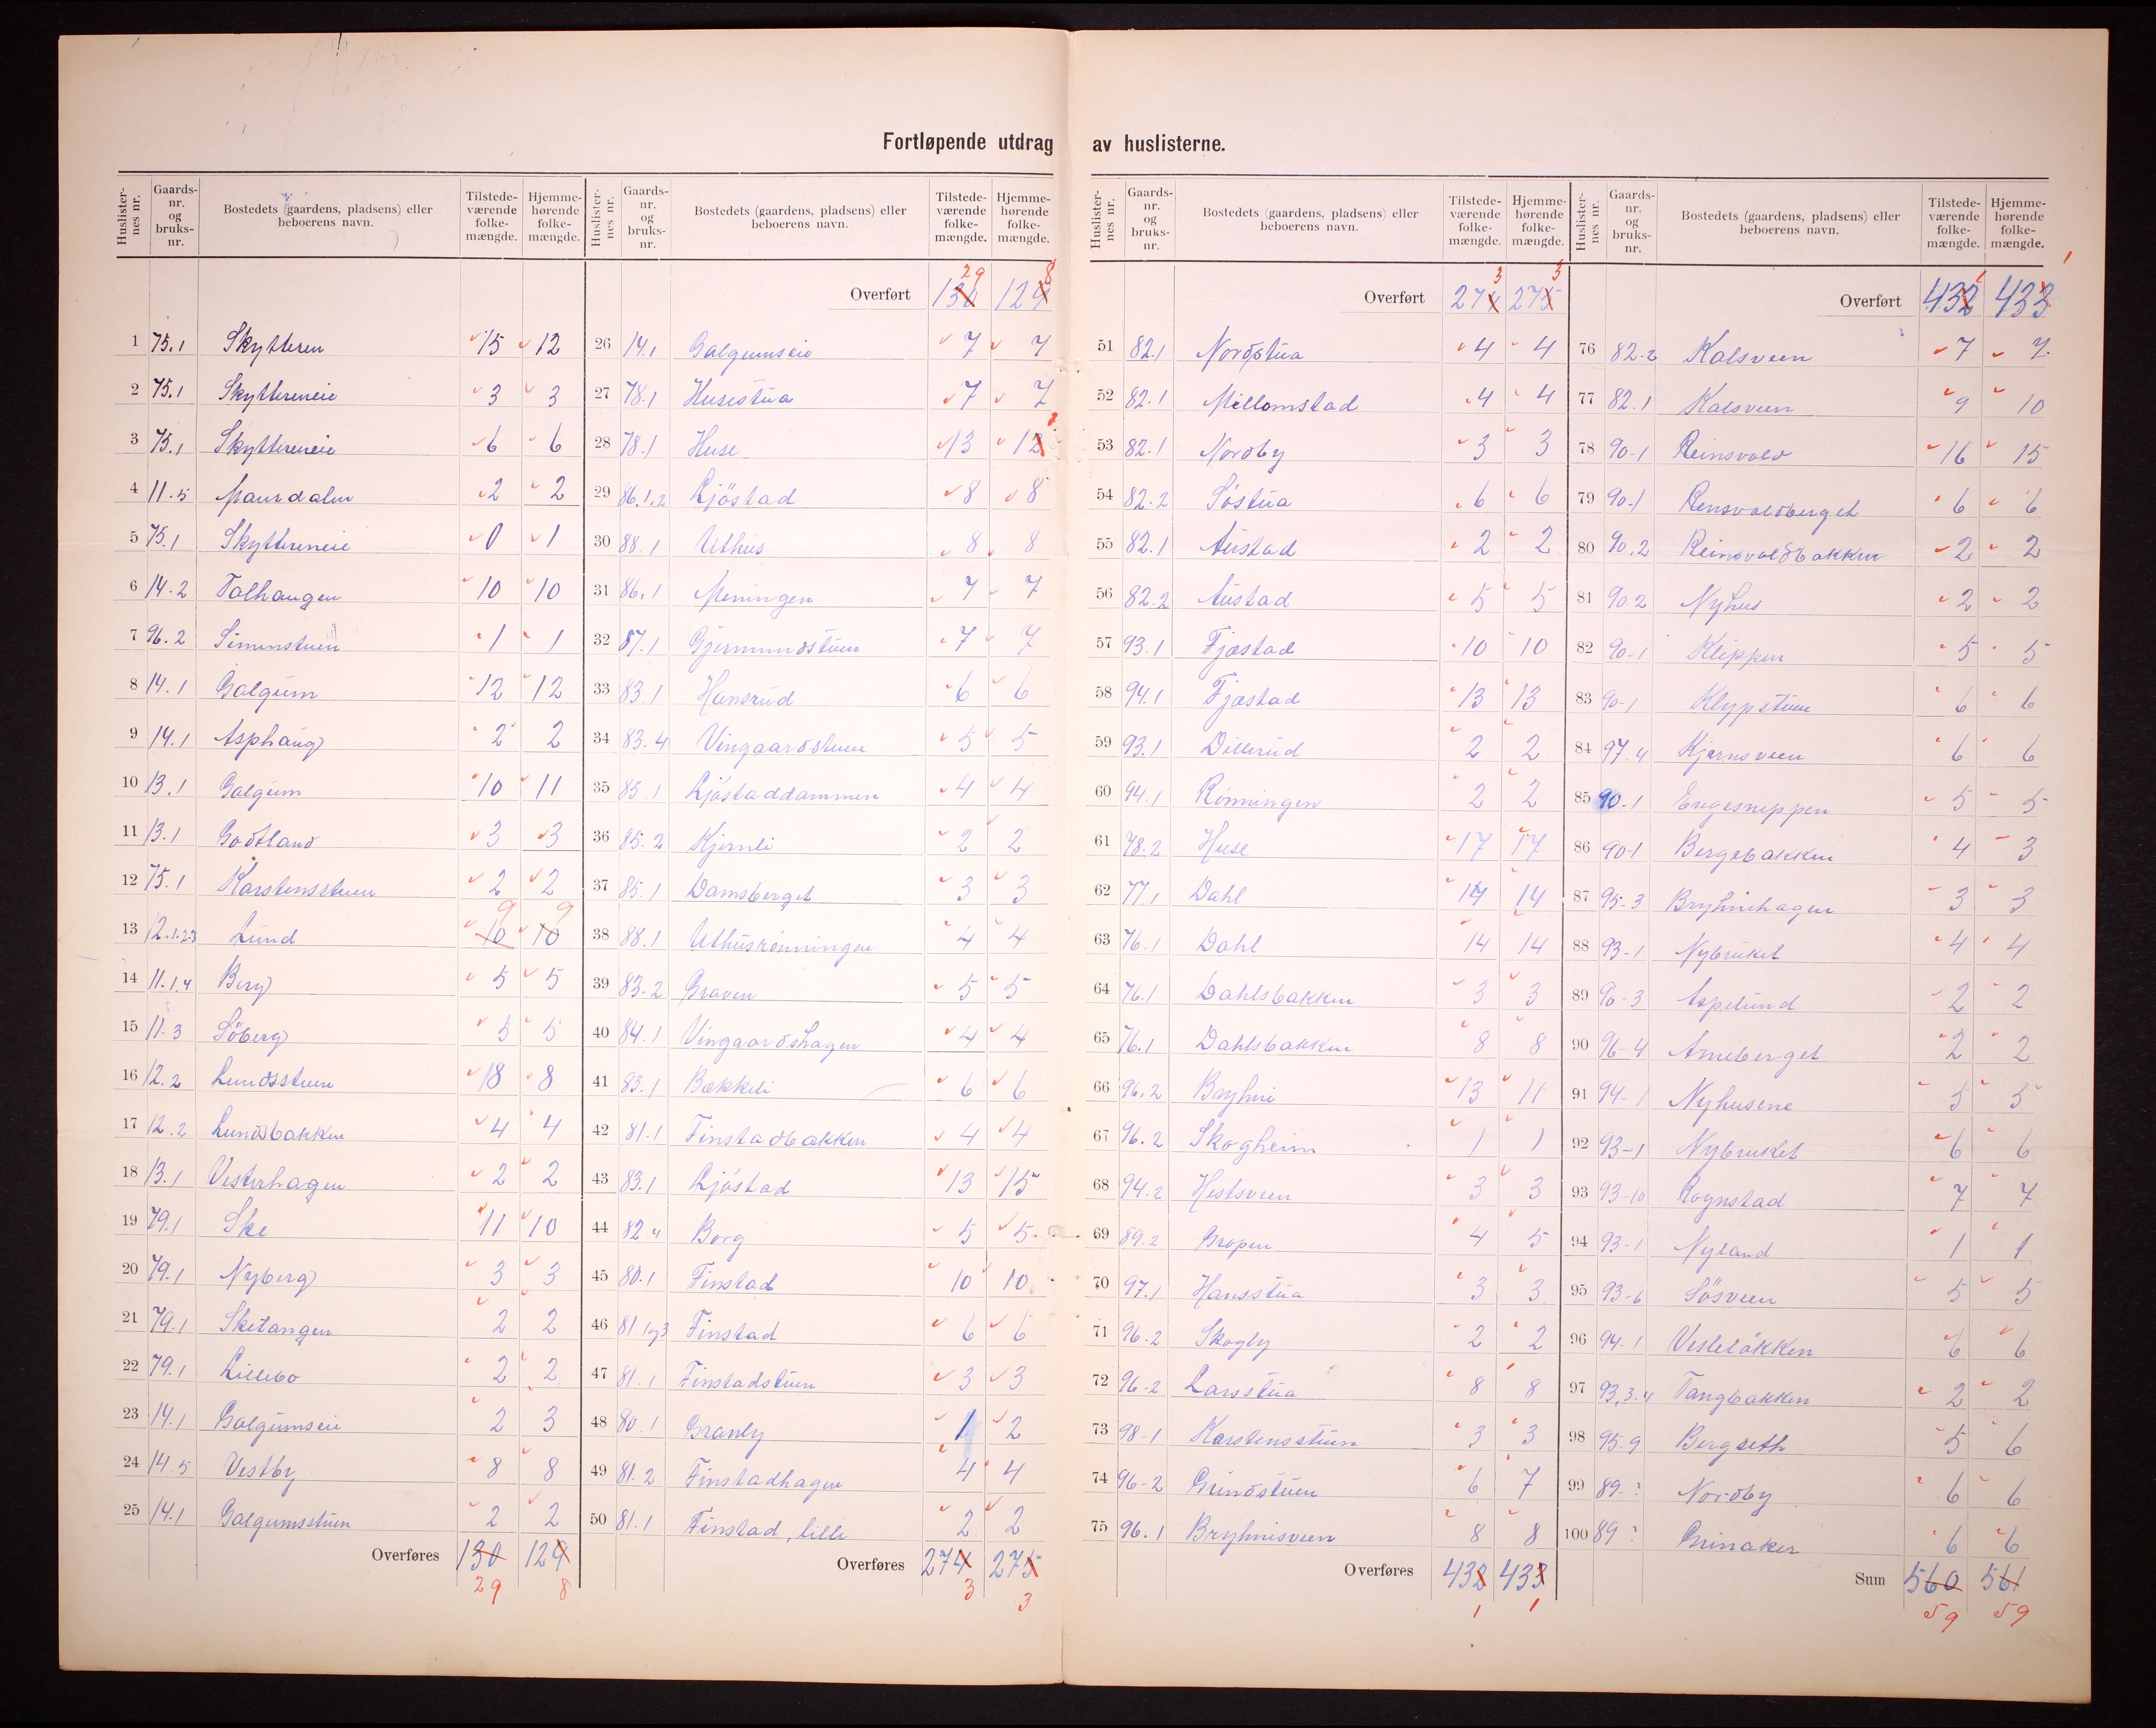 Fortløpende utdrag av huslisterne.
Huslister-nes nr. | Gaards-nr. og bruks-nr. | Bostedets (gaardens, pladsens) eller beboerens navn. | Tilstede-værende folke-mængde. | Hjemme-hørende folke-mængde.
1 75.1 Skytteren 15 12
2 75.1 Skyttereneie 3 3
3 75.1 Skyttereneie 6 6
4 11.5 Maurdalen 2 2
5 75.1 Skyttereneie 0 1
6 14.2 Tolhaugen 10 10
7 96.2 Simenstuen 1 1
8 14.1 Galgum 12 12
9 14.1 Asphaug 2 2
10 13.1 Galgum 10 11
11 13.1 Godtland 3 3
12 75.1 Karstensstuen 2 2
9 9
13 12.1.2.3 Lund 10 10
14 11.1.4 Berg 5 5
15 11.3 Söberg 5 5
16 12.2 Lundsstuen 8 8
17 12.2 Lundsbakken 4 4
18 13.1 Vesterhagen 2 2
19 79.1 Ske 11 10
20 79.1 Nyberg 3 3
21 79.1 Sketangen 2 2
22 79.1 Lillebo 2 2
23 14.1 Galgumseie 2 3
24 14.5 Vestby 8 8
25 14.1 Galgumsstuen 2 2
Overføres 130 129
29 8
Huslister-nes nr. | Gaards-nr. og bruks-nr. | Bostedets (gaardens, pladsens) eller beboerens navn. | Tilstede-værende folke-mængde. | Hjemme-hørende folke-mængde.
29 8
Overført 130 129
26 14.1 Galgumseie 7 7
27 78.1 Husestua 7 7
28 78.1 Huse 13 12
29 86.1,2 Ljöstad 8 8
30 88.1 Uthus 8 8
31 86.1 Meningen 7 7
32 87.1 Gjermundstuen 7 7
33 83.1 Hansrud 6 6
34 83.4 Vingaardstuen 5 5
35 85.1 Ljöstaddammen 4 4
36 85.2 Kjernli 2 2
37 85.1 Damsberget 3 3
38 88.1 Uthusrönningen 4 4
39 83.2 Graven 5 5
40 84.1 Vingaardshagen 4 4
41 83.1 Bækkeli 6 6
42 81.1 Finstadbakken 4 4
43 83.1 Ljöstad 13 15
44 82.4 Borg 5 5
45 80.1 Finstad 10 10
46 81.1og3 Finstad 6 6
47 81.1 Finstadstuen 3 3
48 80.1 Granly 1 2
49 81.2 Finstadhagen 4 4
50 81.1 Finstad, lille 2 2
Overføres 274 275
3 3
Huslister-nes nr. | Gaards-nr. og bruks-nr. | Bostedets (gaardens, pladsens) eller beboerens navn. | Tilstede-værende folke-mængde. | Hjemme-hørende folke-mængde.
3 3
Overført 274 275
51 82.1 Nordstua 4 4
52 82.1 Mellomstad 4 4
53 82.1 Nordby 3 3
54 82.2 Söstua 6 6
55 82.1 Austad 2 2
56 82.2 Austad 5 5
57 93.1 Fjæstad 10 10
58 94.1 Fjæstad 13 13
59 93.1 Dillerud 2 2
60 94.1 Rönningen 2 2
61 78.2 Huse 17 17
62 77.1 Dahl 14 14
63 76.1 Dahl 14 14
64 76.1 Dahlsbakken 3 3
65 76.1 Dahlsbakken 8 8
66 96.2 Bryhni 13 11
67 96.2 Skogheim 1 1
68 94.2 Hestsveen 3 3
69 89.2 Gropen 4 5
70 97.1 Hansstua 3 3
71 96.2 Skogly 2 2
72 96.2 Larsstua 8 8
73 98-1 Karstensstuen 3 3
74 96-2 Grindstuen 6 7
75 96.1 Bryhnisveen 8 8
Overføres 432 433
1 1
Huslister-nes nr. | Gaards-nr. og bruks-nr. | Bostedets (gaardens, pladsens) eller beboerens navn. | Tilstede-værende folke-mængde. | Hjemme-hørende folke-mængde.
1 1
Overført 432 433
76 82.2 Kalsveen 7 7
77 82.1 Kalsveen 9 10
78 90-1 Reinsvold 16 15
79 90-1 Rensvoldberget 6 6
80 90.2 Reinsvoldbakken 2 2
81 90.2 Nyhus 2 2
82 90-1 Klippen 5 5
83 90-1 Klypstuen 6 6
84 97.4 Kjernsveen 6 6
85 90.1 Engesneppen 5 5
86 90-1 Bergebakken 4 3
87 95-3 Bryhnihagen 3 3
88 93-1 Nybruket 4 4
89 90-3 Aspelund 2 2
90 96-4 Arneberget 2 2
91 94-1 Nyhusene 5 5
92 93-1 Nybruket 6 6
93 93-10 Rognstad 7 7
94 93-1 Nyland 1 1
95 93-6 Sösveen 5 5
96 94.1 Veslelökken 6 6
97 93,3.4 Tangbakken 2 2
98 95.9 Bergseth 5 6
99 89-? Nordby 6 6
100 89 ? Grinaker 6 6
Sum 560 561
59 59